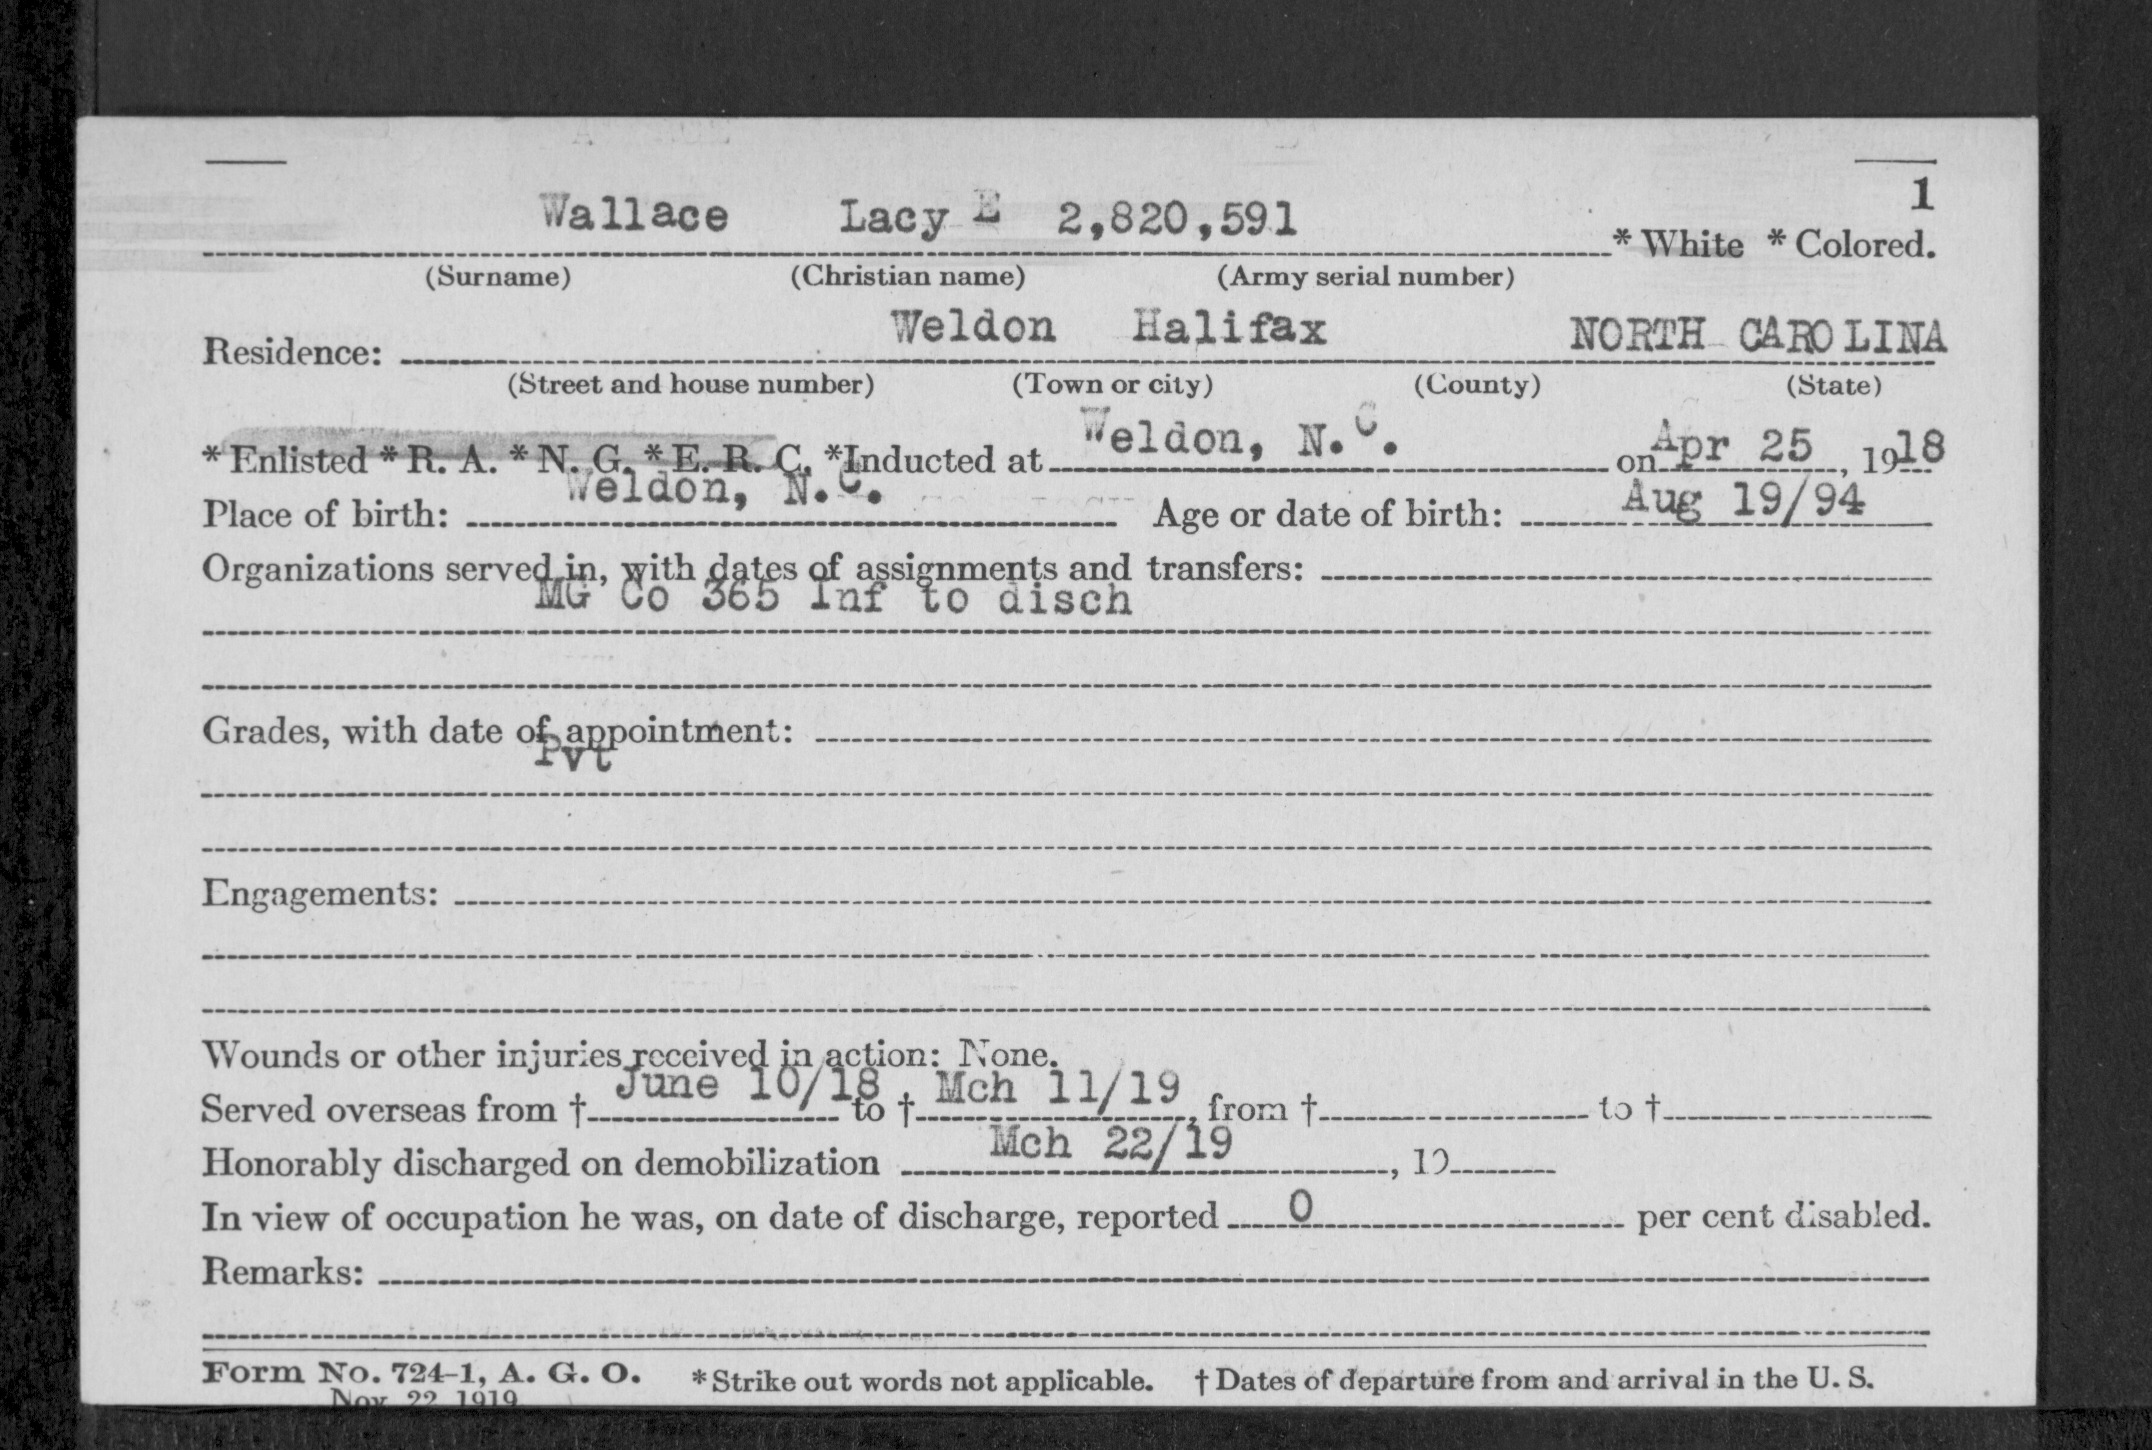 1
Wallace Lacy E 2,820,591 * White * Colored.
(Surname) (Christian name) (Army serial number)
Residence: Weldon Halifax NORTH CAROLINA
(Street and house number) (Town or city) (County) (State)
* Enlisted * R. A. * N. G. * E. R. C. *Inducted at Weldon, N.C. on Apr 25, 1918
Place of birth: Weldon, N.C. Age or date of birth: Aug 19/94
Organizations served in, with dates of assignments and transfers:
MG Co 365 Inf to disch
Grades, with date of appointment:
Pvt
Engagements:
Wounds or other injuries received in action: None.
Served overseas from † June 10/18 to † Mch 11/19, from † to †
Honorably discharged on demobilization Mch 22/19, 19
In view of occupation he was, on date of discharge, reported 0 per cent disabled.
Remarks:
Form No. 724-1, A. G. O. * Strike out words not applicable. † Dates of departure from and arrival in the U. S.
Nov. 22, 1919